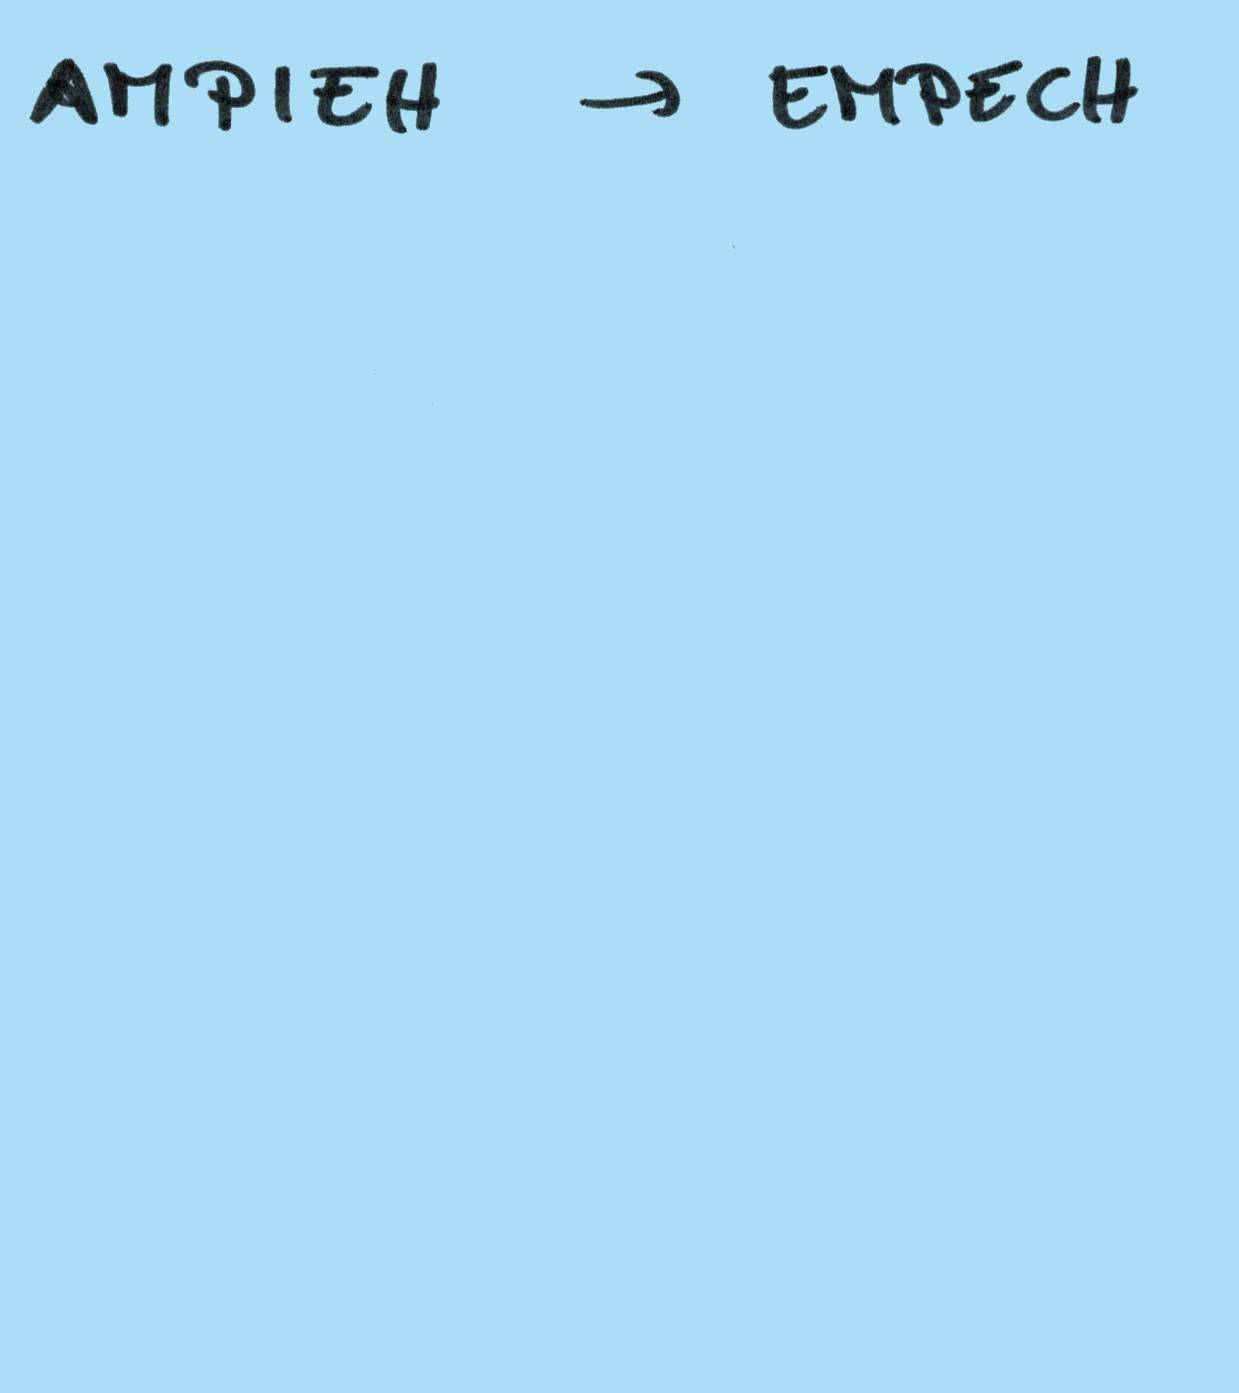 AMPIEH → EMPECH